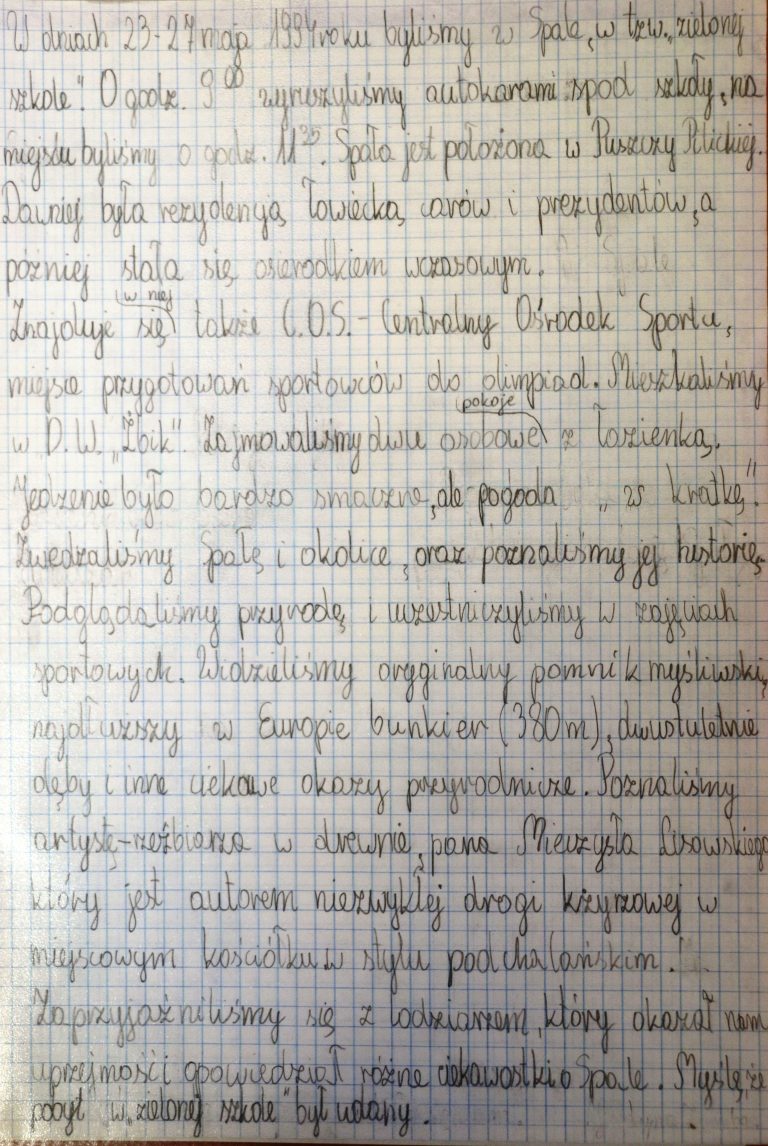 W dniach 23-27 maja 1994 roku byliśmy w Spale, w tzw. „zielonej
szkole". O godz. 9⁰⁰ wyruszyliśmy autokarami spod szkoły, na
miejscu byliśmy o godz. 11³⁵. Spała jest położona w Puszczy Pilickiej.
Dawniej była rezydencją łowiecką carów i prezydentów, a
później stała się osierodkiem wczasowym.
w niej
Znajduje się także C.O.S. - Centralny Ośrodek Sportu,
miejsce przygotowań sportowców do olimpiad. Mieszkaliśmy
pokoje
w D.W. „Żbik". Zajmowaliśmy dwu osobowe z łazienką.
Jedzenie było bardzo smaczne, ale pogoda „w kratkę".
Zwiedzaliśmy Spałę i okolice, oraz poznaliśmy jej historię.
Podglądaliśmy przyrodę i uczestniczyliśmy w zajęciach
sportowych. Widzieliśmy oryginalny pomnik myśliwski,
najdłuższy w Europie bunkier (380m), dwustuletnie
dęby i inne ciekawe okazy przyrodnicze. Poznaliśmy
artystę-rzeźbiarza w drewnie, pana Mieczysła Lisowskiego
który jest autorem niezwykłej drogi krzyżowej w
miejscowym kościółku w stylu podchalańskim.
Zaprzyjaźniliśmy się z lodziarzem, który okazał nam
uprzejmość i opowiedział różne ciekawostki o Spale. Myślę, że
pobyt w „zielonej szkole" był udany.